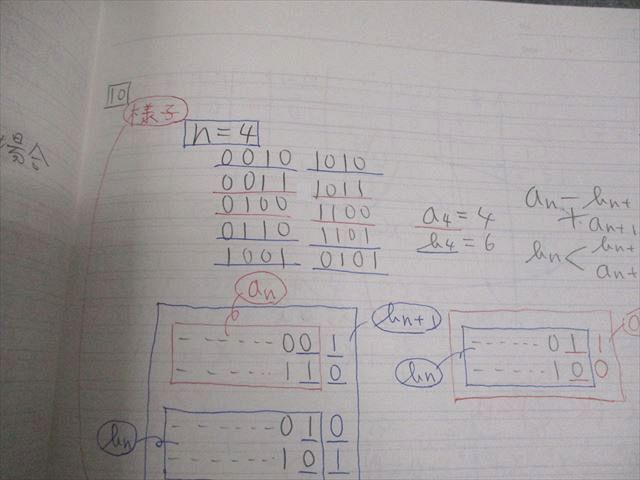 10
様子
n=4
0010 1010
0011 1011
0100 1100
0110 1101
1001 0101
a4=4
b4=6
an bn+1
an+1
bn < bn+
an+
an
bn+1
------001
------110
bn
------010
------101
bn
------011
------100